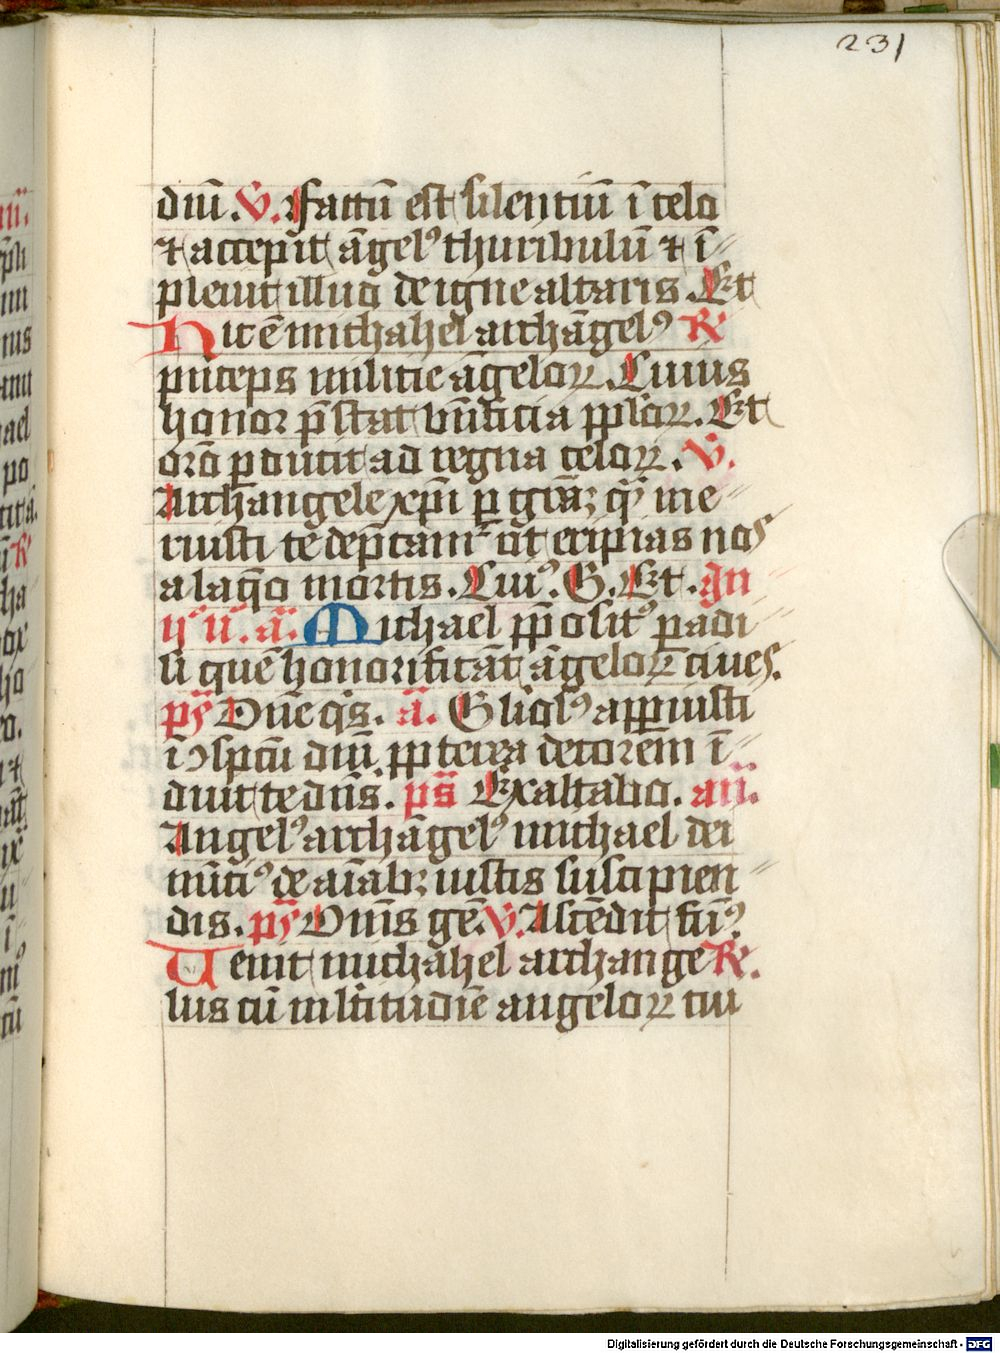 231
diu᷑. V. Factū est silentiū ī celo
⁊ accepit āgelꝰ thuribulū ⁊ ī⸗
pleuit illud de igne altaris. Et
Hic ē michahel archāgelꝰ R
princeps militie āgeloꝝ. Cuius
honor p̄stat bn̄ficia ppl̄oꝝ. Et
orō ꝑducit ad regna celoꝝ. V.
Archangele xp̄i ꝑ gr̄az qᷓ me⸗
ruisti te dep̄camᷣ vt eripias nos
a laq̄o mortis. Cuiꝰ. G. Et. In
ij⁹ n̄. a᷑. Michael p̄positꝰ paradi⸗
si quē honorificāt āgeloꝝ ciues.
ps Dn̄e qͥs. a᷑. Gl̓iqlꝰ apparuisti
ī ꝯspc̄u dn̄i ꝓpterea decorem ī⸗
duit te dn̄s. ps Exaltabo. an̄.
Angelꝰ archāgelꝰ michael dei
nūciꝰ de aīabꝫ iustis suscipien⸗
dis. ps Dn̄is gē. V. Ascēdit fūꝰ
Uenit michahel archange R.
lus cū ml̓titudīe angeloꝝ cui
Digitalisierung gefördert durch die Deutsche Forschungsgemeinschaft - DFG